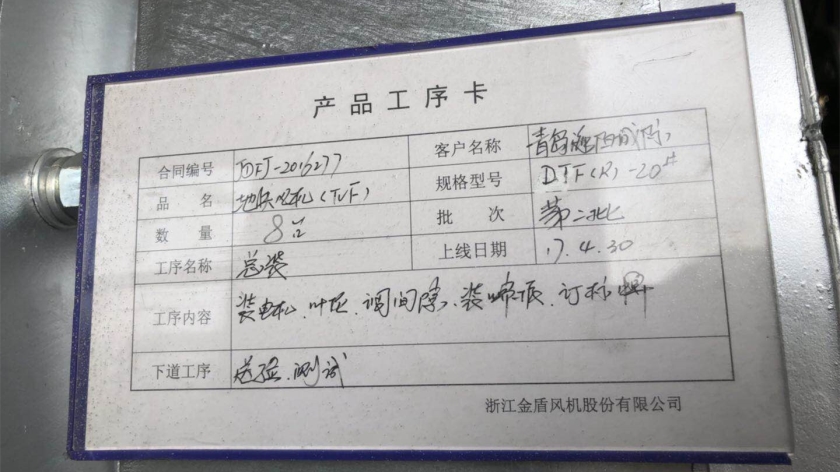 产品工序卡
合同编号 JDFJ-2016277 客户名称 青岛
品名 地铁风机(TVF) 规格型号 DTF(R)-20#
数量 8台 批次 第二批
工序名称 总装 上线日期 17.4.30
工序内容 装电机、叶片、调间隙、装 订标牌
下道工序 送检、测试
浙江金盾风机股份有限公司